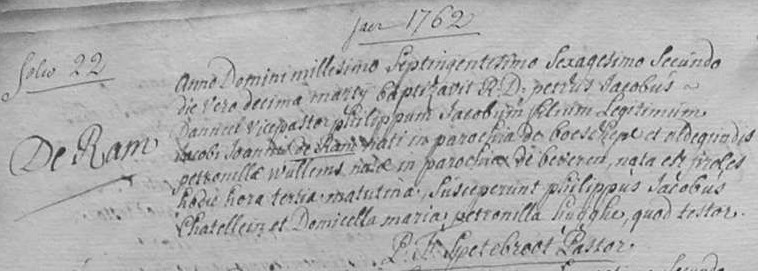 jaer 1762
folio 22
Anno Domini millesimo Septingentesimo Sexagesimo Secundo
die vero decima martij baptizavit R: D: petrus Jacobus
Danneel vicepastor philippum Jacobum filium Legitimum
De Ram
Jacobi Joannis de Ram nati in parochia de boeschepe et aldegundis
petronillæ Wullems natæ in parochia de beveren, nata est proles
hodie hora tertia matutina, Susceperunt philippus Jacobus
Chatellein et Domicella maria petronilla huyghe, quod testor.
P. F. Spetebroot Pastor